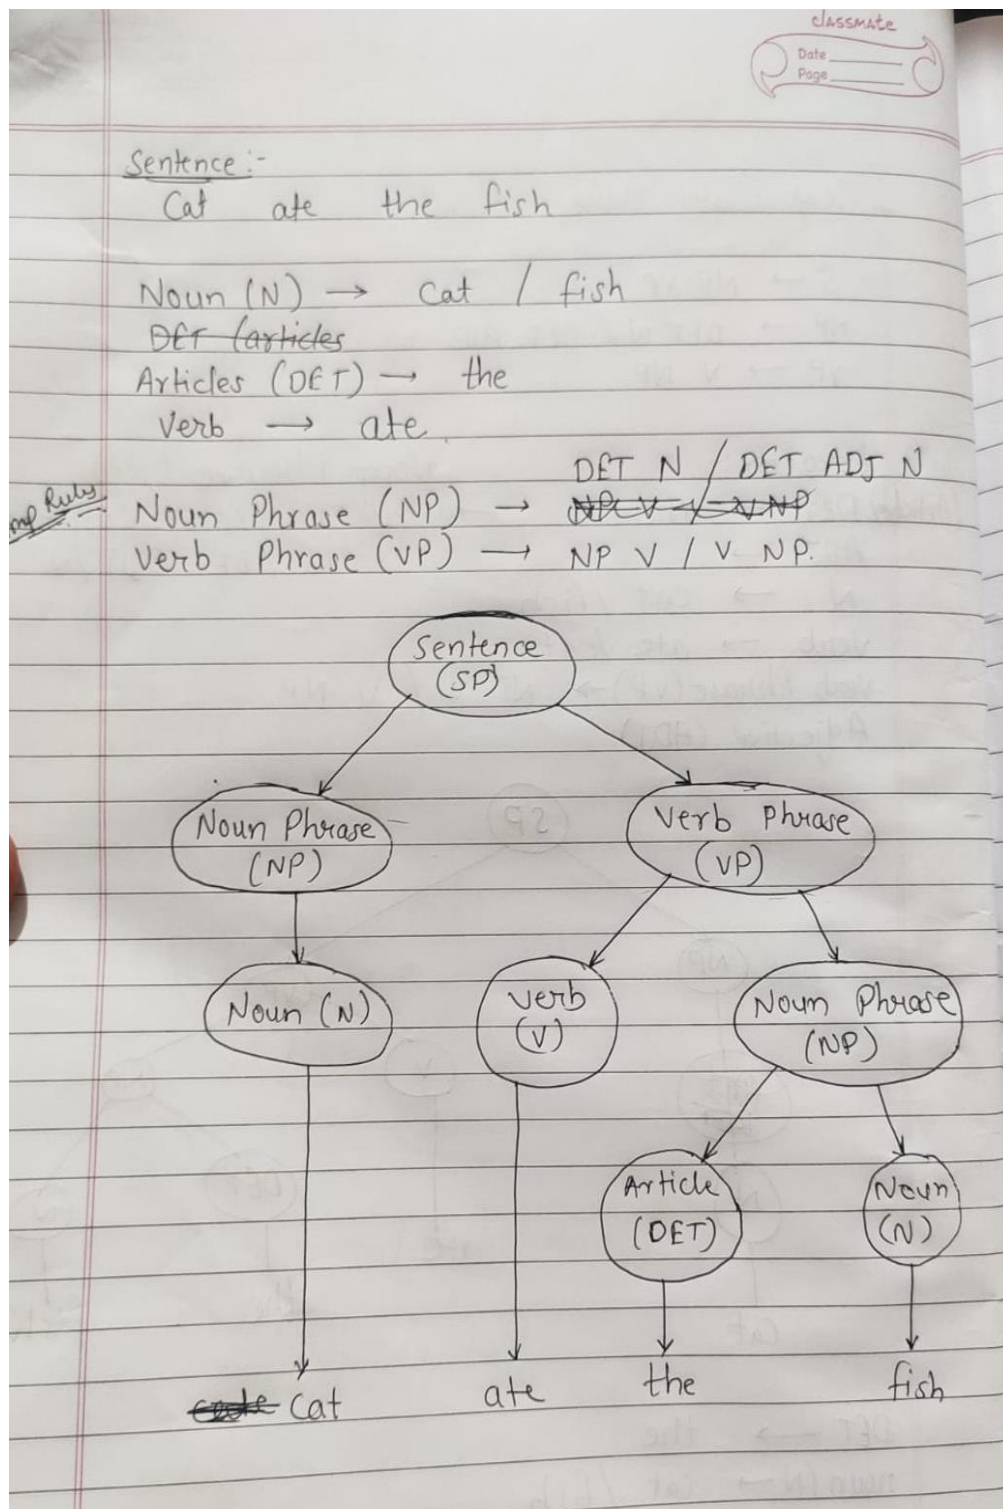 classmate
Date
Page
Sentence :-
Cat ate the fish
Noun (N) → Cat / fish
DET (articles
Articles (DET) → the
Verb → ate
DET N / DET ADJ N
Imp Rules
Noun Phrase (NP) → NP V / V NP
Verb Phrase (VP) → NP V / V NP.
Sentence
(SP)
Noun Phrase
(NP)
Verb Phrase
(VP)
Noun (N)
Verb
(V)
Noun Phrase
(NP)
Article
(DET)
Noun
(N)
Cat
ate
the
fish